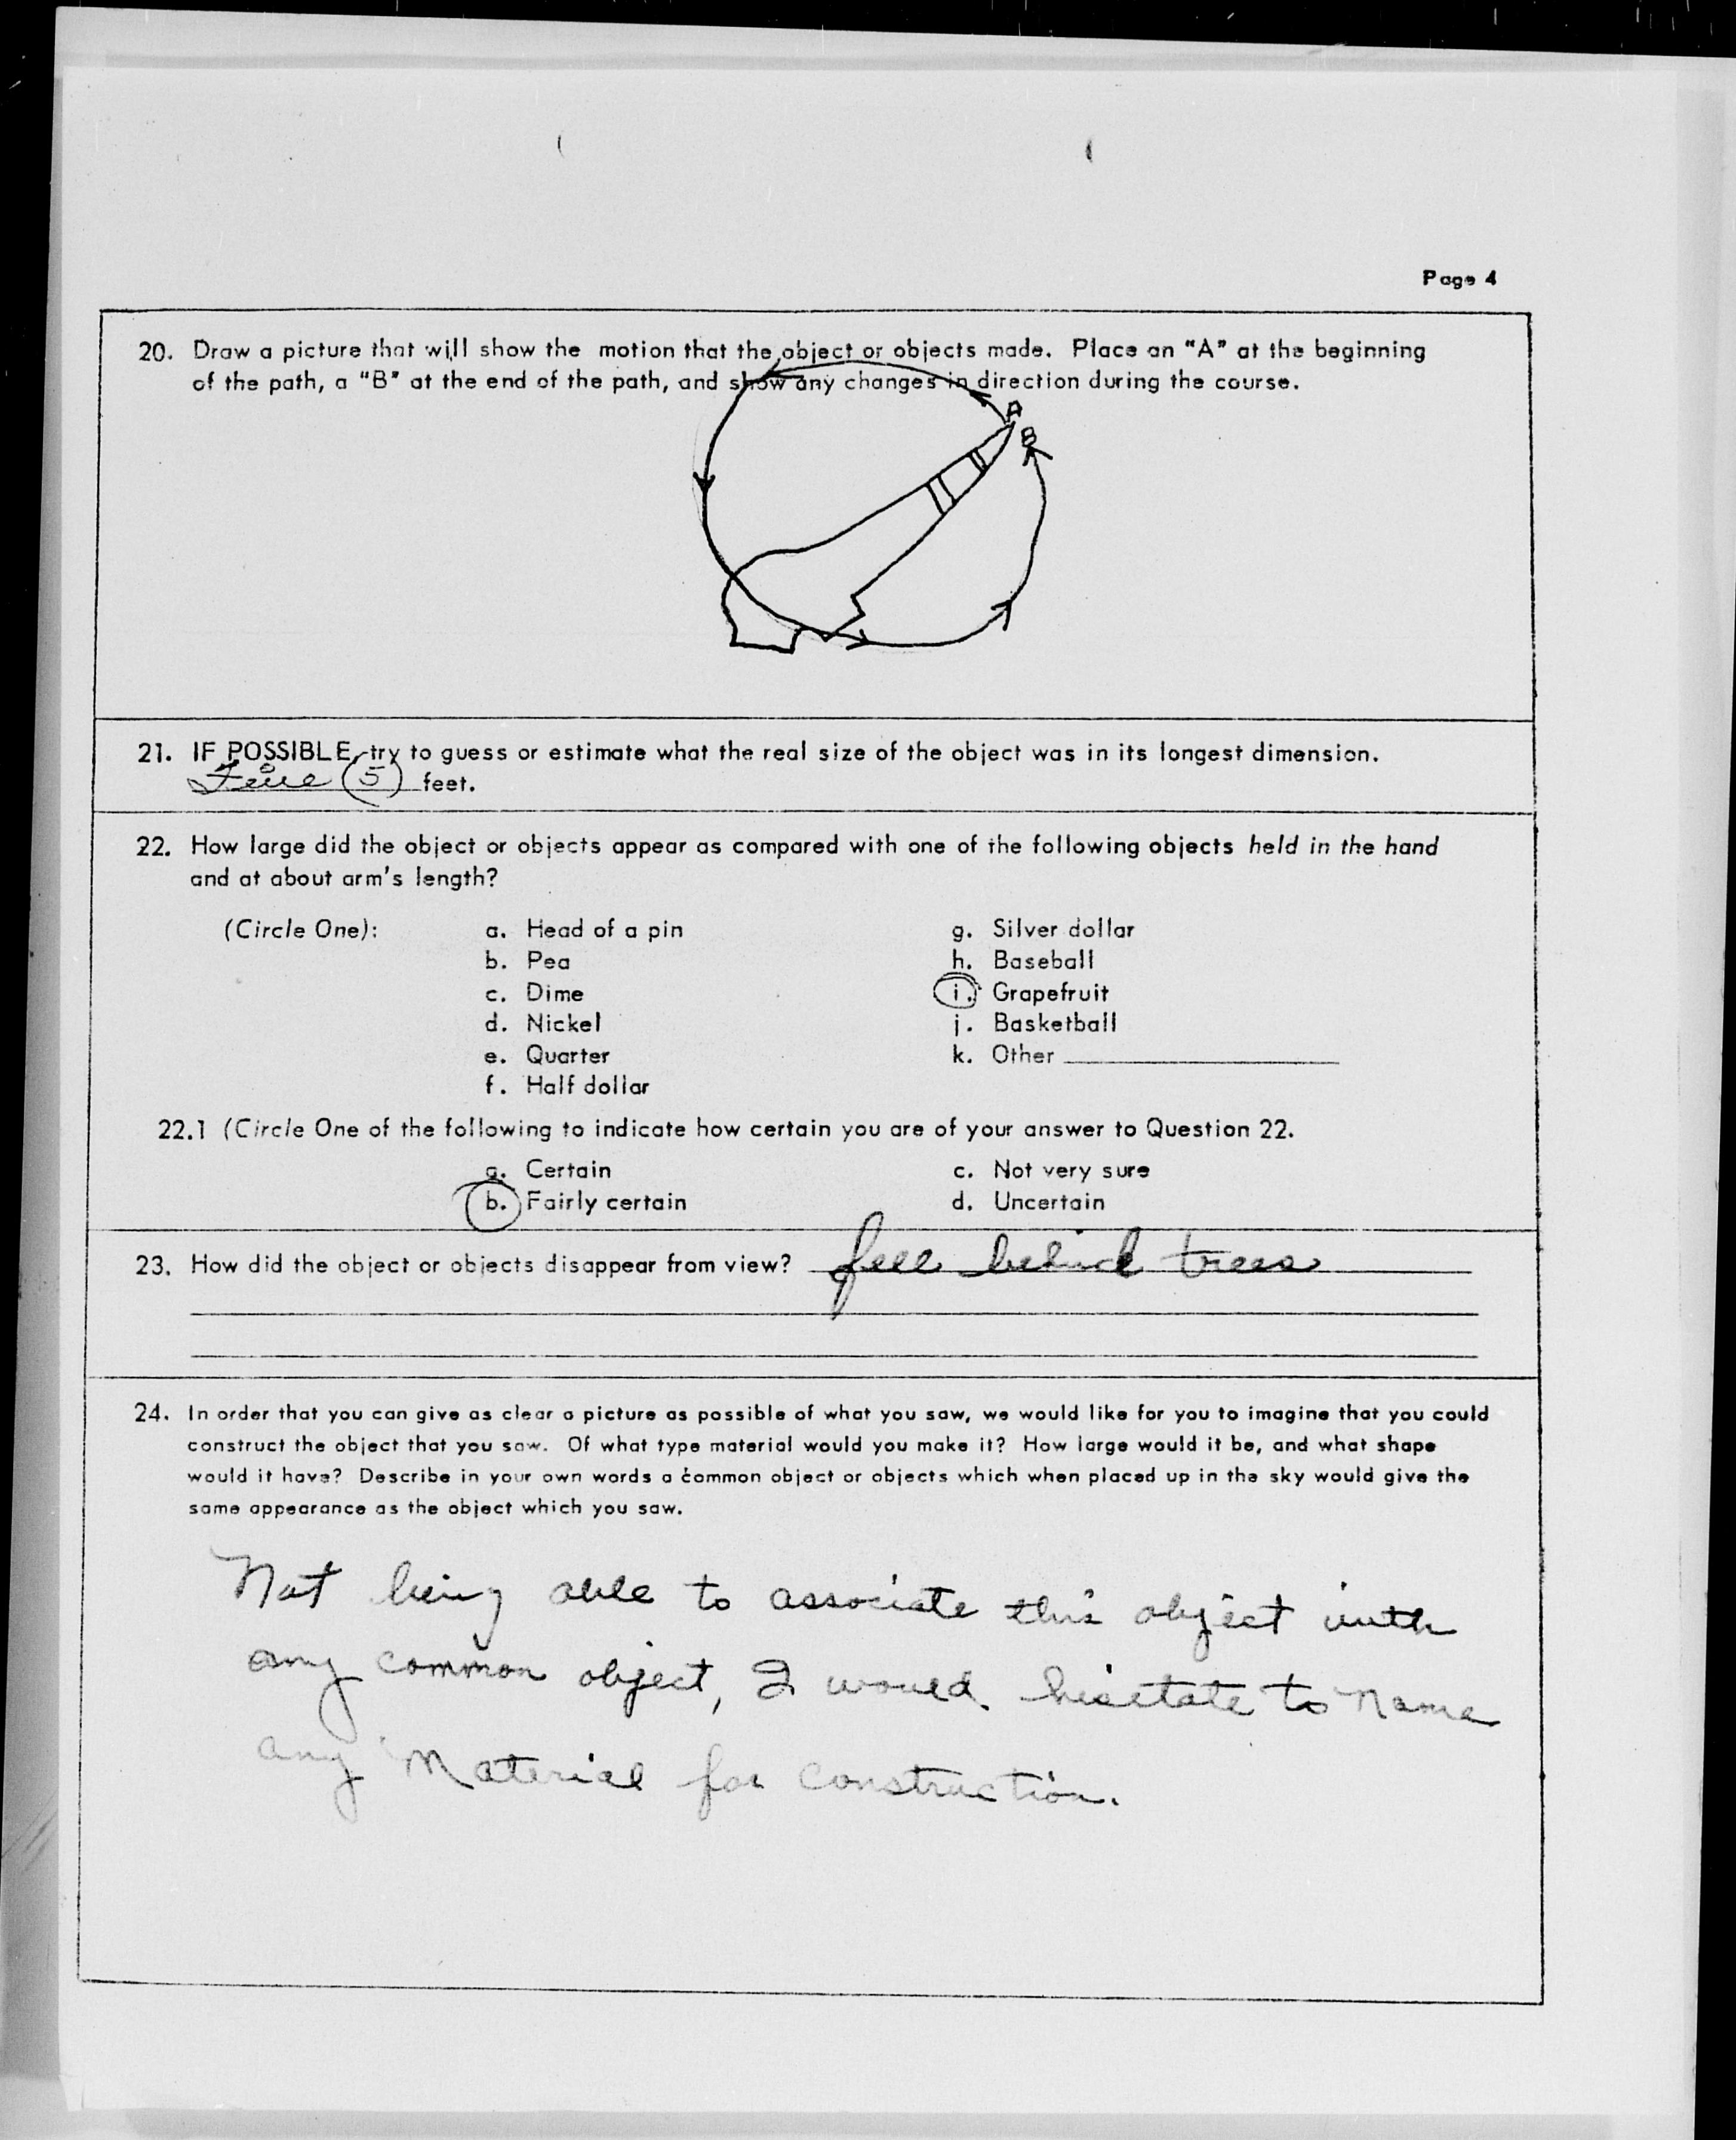 Page 4
20. Draw a picture that will show the motion that the object or objects made. Place an "A" at the beginning
of the path, a "B" at the end of the path, and show any changes in direction during the course.
A
B
21. IF POSSIBLE, try to guess or estimate what the real size of the object was in its longest dimension.
Five (5) feet.
22. How large did the object or objects appear as compared with one of the following objects held in the hand
and at about arm's length?
(Circle One): a. Head of a pin g. Silver dollar
b. Pea h. Baseball
c. Dime i. Grapefruit
d. Nickel j. Basketball
e. Quarter k. Other
f. Half dollar
22.1 (Circle One of the following to indicate how certain you are of your answer to Question 22.
a. Certain c. Not very sure
b. Fairly certain d. Uncertain
23. How did the object or objects disappear from view? fell behind trees
24. In order that you can give as clear a picture as possible of what you saw, we would like for you to imagine that you could
construct the object that you saw. Of what type material would you make it? How large would it be, and what shape
would it have? Describe in your own words a common object or objects which when placed up in the sky would give the
same appearance as the object which you saw.
Not being able to associate this object with
any common object, I would hisetate to name
any Material for construction.